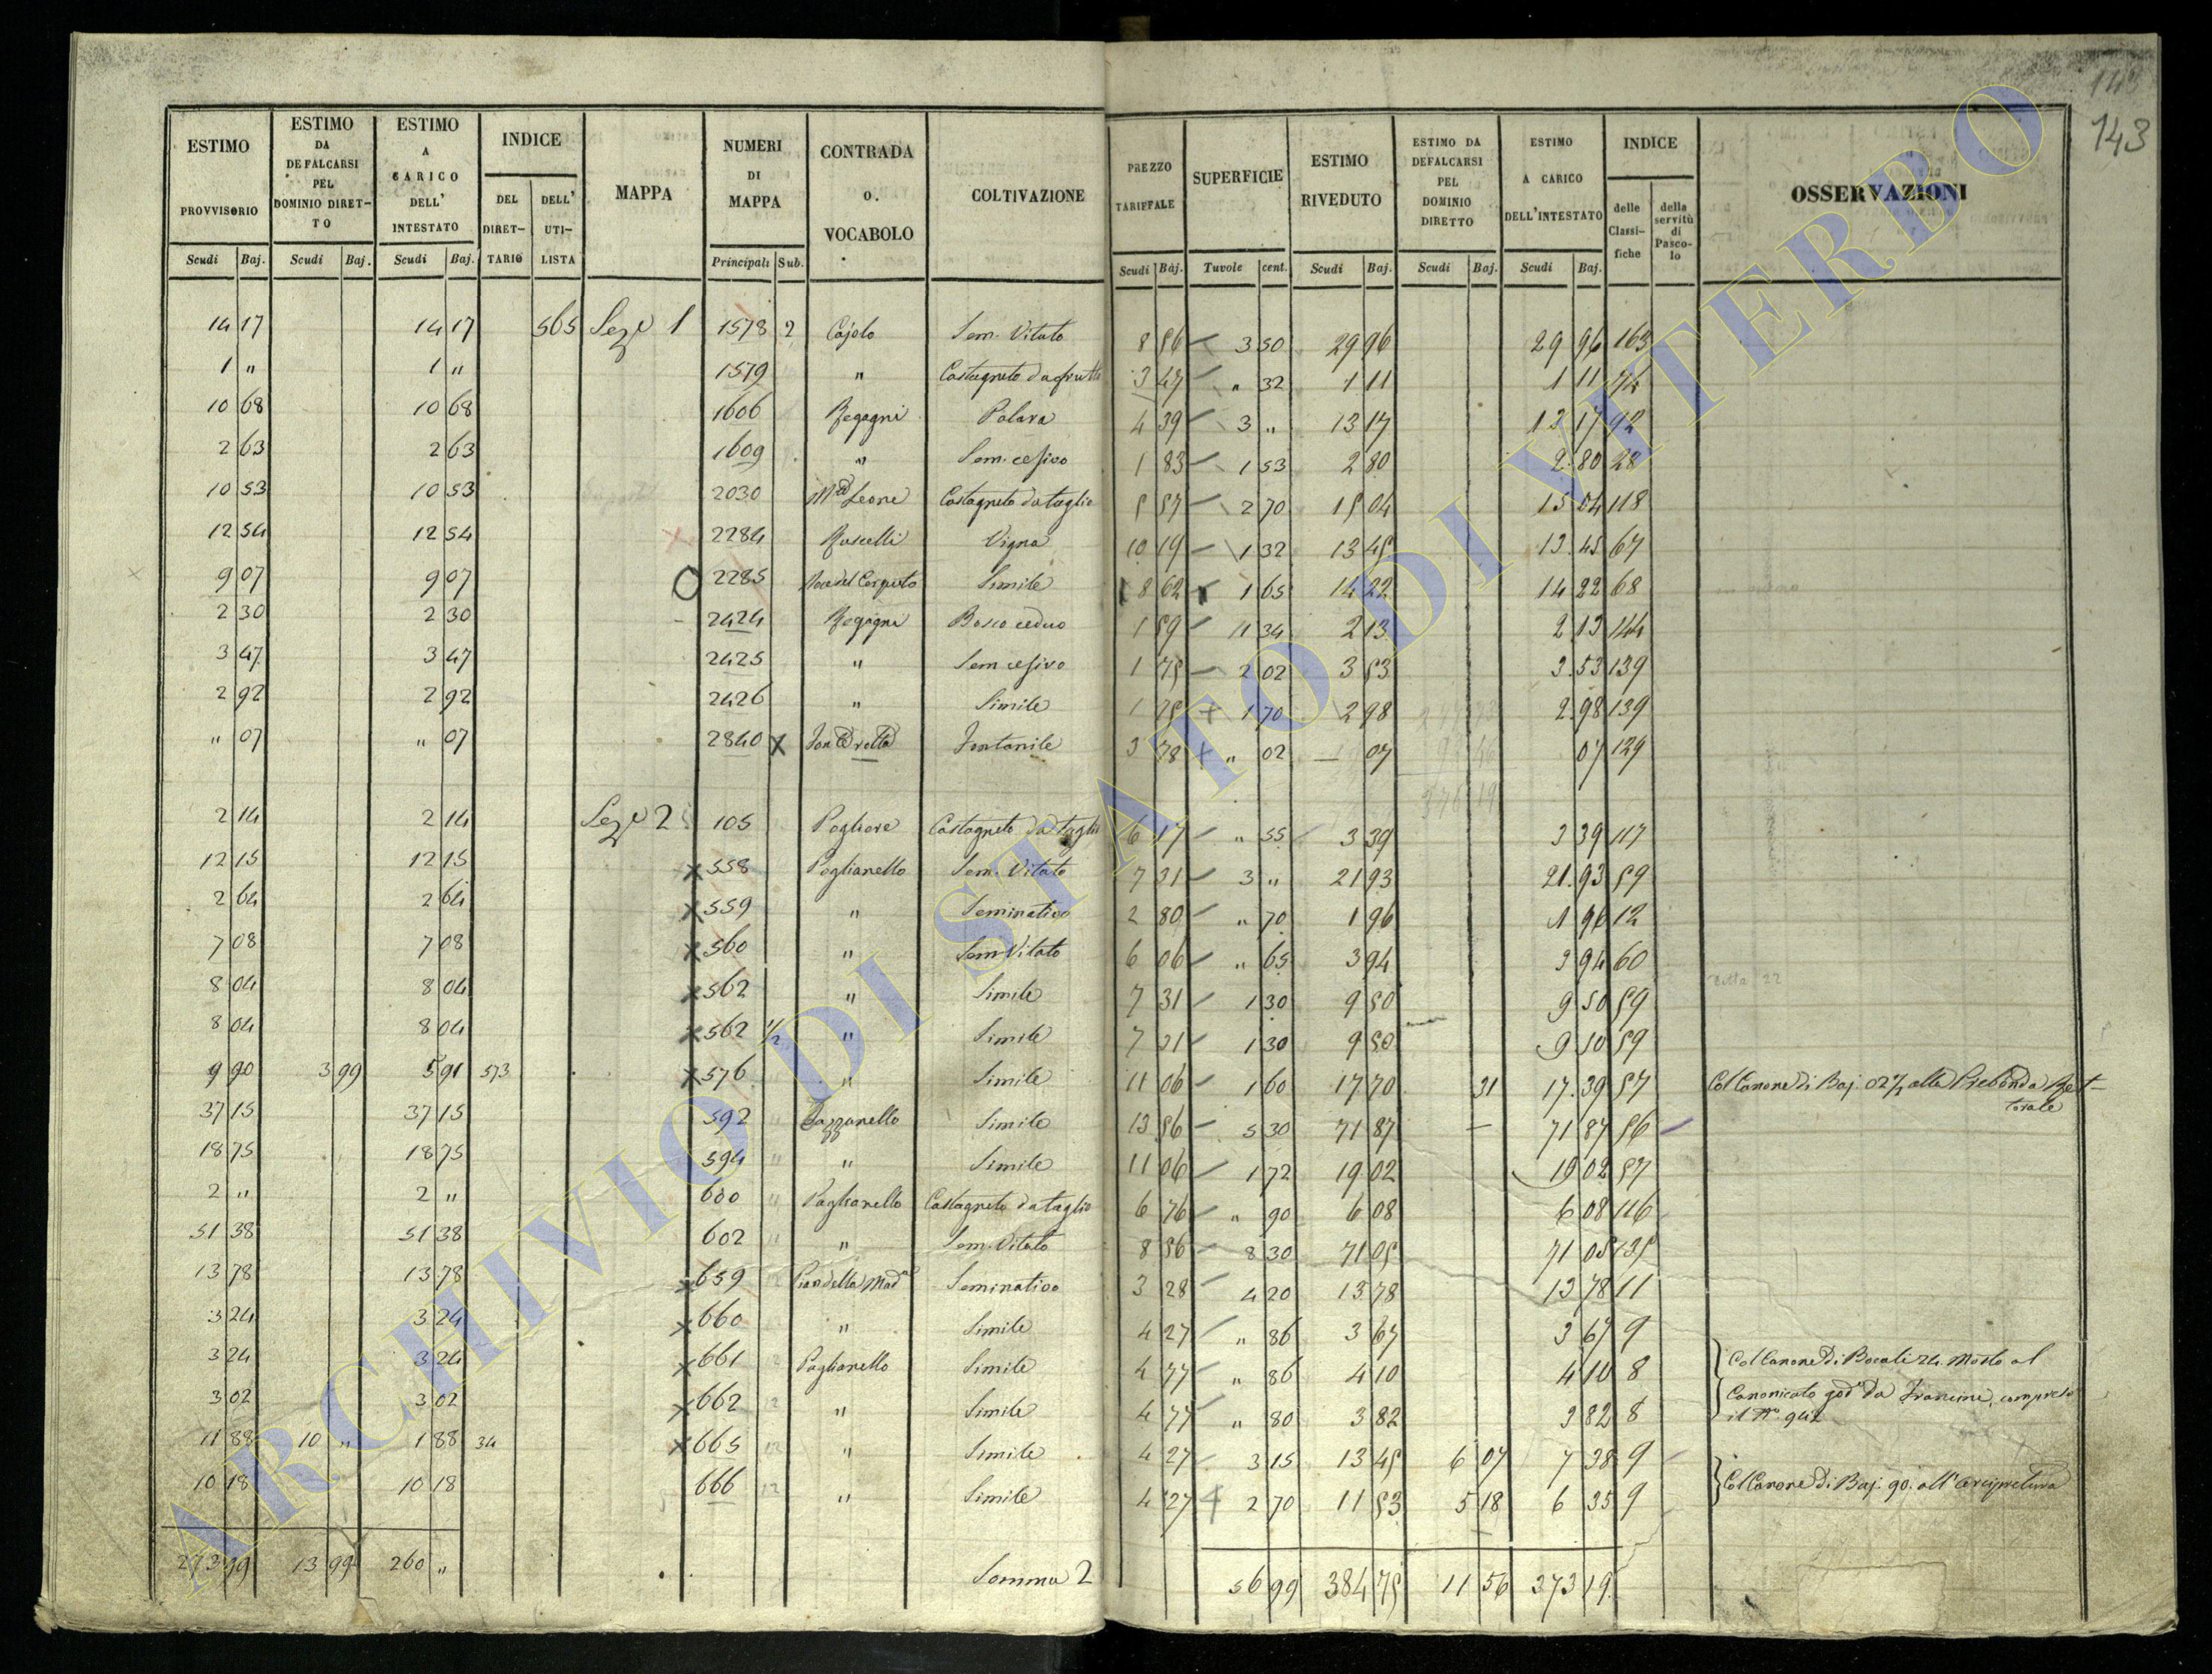 143
143
ESTIMO PROVVISORIO | ESTIMO DA DEFALCARSI PEL DOMINIO DIRETTO | ESTIMO A CARICO DELL' INTESTATO | INDICE DEL DIRETTARIO | DELL' UTILISTA | MAPPA | NUMERI DI MAPPA | CONTRADA O. VOCABOLO | COLTIVAZIONE | PREZZO TARIFFALE | SUPERFICIE | ESTIMO RIVEDUTO | ESTIMO DA DEFALCARSI PEL DOMINIO DIRETTO | ESTIMO A CARICO DELL'INTESTATO | INDICE delle Classifiche | della servitù di Pascolo | OSSERVAZIONI
Scudi Baj. | Scudi Baj. | Scudi Baj. | Principali Sub. | Scudi Baj. | Tavole cent. | Scudi Baj. | Scudi Baj. | Scudi Baj.
14 17 14 17 565 Seze 1 1578 2 Cajolo Sem. Vitato 8 56 3 50 29 96 29 96 163
1 " 1 " 1579 " Castagneto da frutto 3 47 " 32 1 11 1 11 74
10 68 10 68 1606 Regagni Palara 4 39 3 " 13 17 13 17 92
2 63 2 63 1609 " Sem. cesivo 1 83 1 53 2 80 2 80 28
10 53 10 53 2030 Mte Leone Castagneto da taglio 5 57 2 70 15 04 15 04 118
12 54 12 54 2284 Ruscelli Vigna 10 19 1 32 13 45 13 45 67
9 07 9 07 2285 Simile 8 62 1 65 14 22 14 22 68
2 30 2 30 2424 Regagni Bosco ceduo 1 59 1 34 2 13 2 13 144
3 47 3 47 2425 " Sem cesivo 1 75 2 02 3 53 3 53 139
2 92 2 92 2426 " Simile 1 75 1 70 2 98 2 98 139
" 07 " 07 2840 X Fontanile 3 78 " 02 07 07 129
2 14 2 14 Seze 2 105 Pogliare Castagneto da taglio 6 17 " 55 3 39 3 39 117
12 15 12 15 X 558 Paglianello Sem. Vitato 7 31 3 " 21 93 21 93 59
2 64 2 64 X 559 " Seminativo 2 80 " 70 1 96 1 96 12
7 08 7 08 X 560 " Sem Vitato 6 06 " 65 3 94 3 94 60
8 04 8 04 X 562 " Simile 7 31 1 30 9 50 9 50 59
8 04 8 04 X 562 1/2 " Simile 7 31 1 30 9 50 9 50 59
9 90 3 99 5 91 573 X 576 " Simile 11 06 1 60 17 70 31 17 39 57 Col Canone di Baj. 02 1/2 alla Prebenda Ret-
torale
37 15 37 15 592 Gazzanello Simile 13 56 5 30 71 87 71 87 56
18 75 18 75 594 " Simile 11 06 1 72 19 02 19 02 57
2 " 2 " 600 Paglianello Castagneto da taglio 6 76 " 90 6 08 6 08 116
51 38 51 38 602 " Sem. Vitato 8 56 8 30 71 05 71 05 135
13 78 13 78 X 659 Pian della Mada Seminativo 3 28 4 20 13 78 13 78 11
3 24 3 24 X 660 " Simile 4 27 " 86 3 67 3 67 9
3 24 3 24 X 661 Paglianello Simile 4 77 " 86 4 10 4 10 8 Col Canone di Bocali 24. Mosto al
3 02 3 02 X 662 " Simile 4 77 " 80 3 82 3 82 8 Canonicato god° da Francini, compreso
il N° 942
11 88 10 " 1 88 34 X 665 " Simile 4 27 3 15 13 45 6 07 7 38 9
10 18 10 18 666 " Simile 4 27 2 70 11 53 5 18 6 35 9 Col Canone di Baj. 90. all'Arcipretura
273 99 13 99 260 " Somma 2 56 99 384 75 11 56 373 19
ARCHIVIO DI STATO DI VITERBO